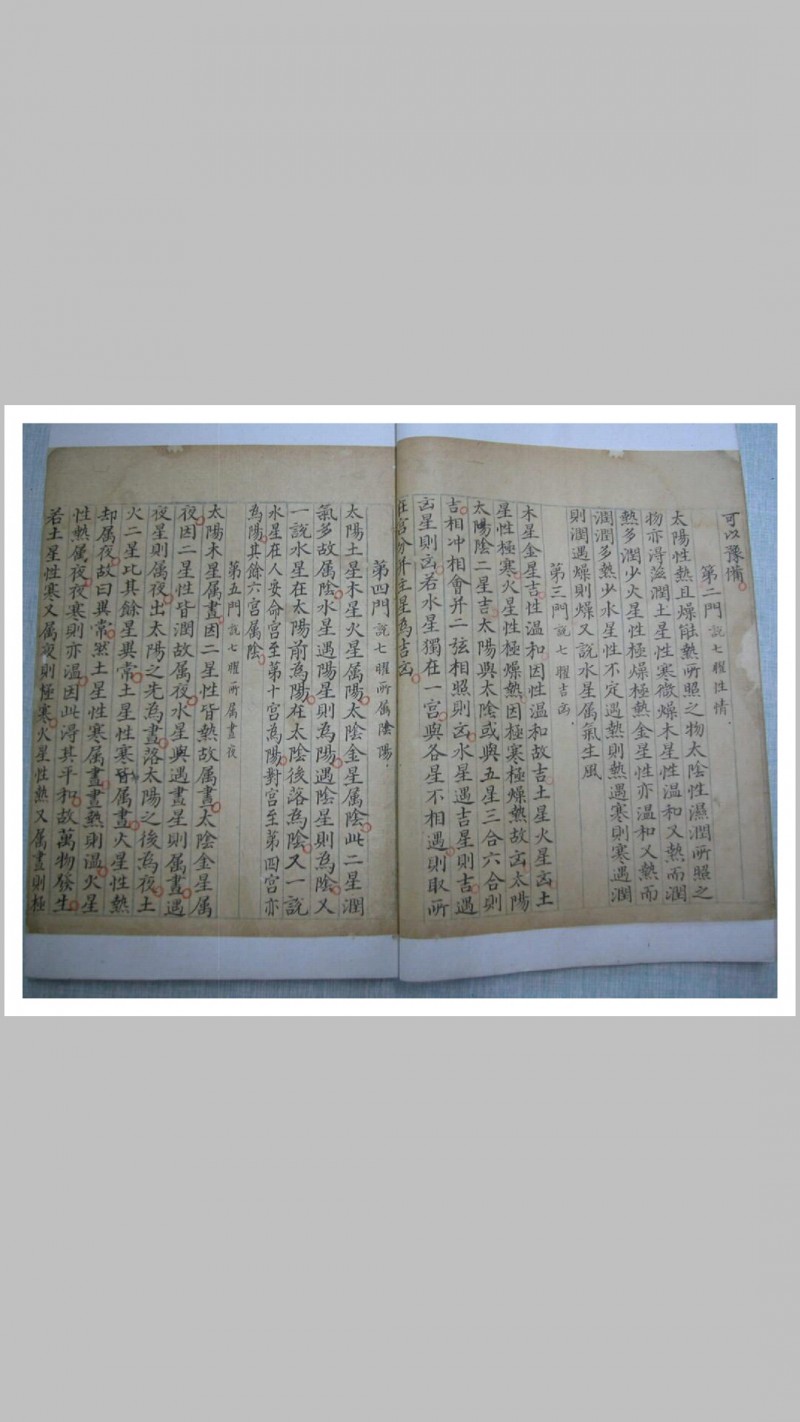 可以豫備
第二門 說七曜性情
太陽性熱且燥能熱所照之物太陰性濕潤所照之
物亦得滋潤土星性寒微燥木星性温和又熱而潤
熱多潤少火星性極燥極熱金星性亦温和又熱而
潤潤多熱少水星性不定遇熱則熱遇寒則寒遇潤
則潤遇燥則燥又說水星属氣生風
第三門 說七曜吉凶
木星金星吉性温和因性温和故吉土星火星凶土
星性極寒火星性極燥熱因極寒極燥熱故凶太陽
太陽陰二星吉太陽與太陰或與五星三合六合則
吉相冲相會并二弦相照則凶水星遇吉星則吉遇
凶星則凶若水星獨在一宫與各星不相遇則取所
在宫分并主星為吉凶
第四門 說七曜所属陰陽
太陽土星木星火星属陽太陰金星属陰此二星潤
氣多故属陰水星遇陽星則為陽遇陰星則為陰又
一說水星在太陽前為陽在太陰後落為陰又一說
水星在人安命宫至第十宫為陽對宫至第四宫亦
為陽其餘六宫属陰
第五門 說七曜所属晝夜
太陽木星属晝因二星性皆熱故属晝太陰金星属
夜因二星性皆潤故属夜水星與遇晝星則属晝遇
夜星則属夜出太陽之先為晝落太陽之後為夜土
火二星比其餘星異常土星性寒属晝火星性熱
却属夜故曰異常然土星性寒属晝晝熱則温火星
性熱属夜夜寒則亦温因此得其平和故萬物發生
若土星性寒又属夜則極寒火星性熱又属晝則極